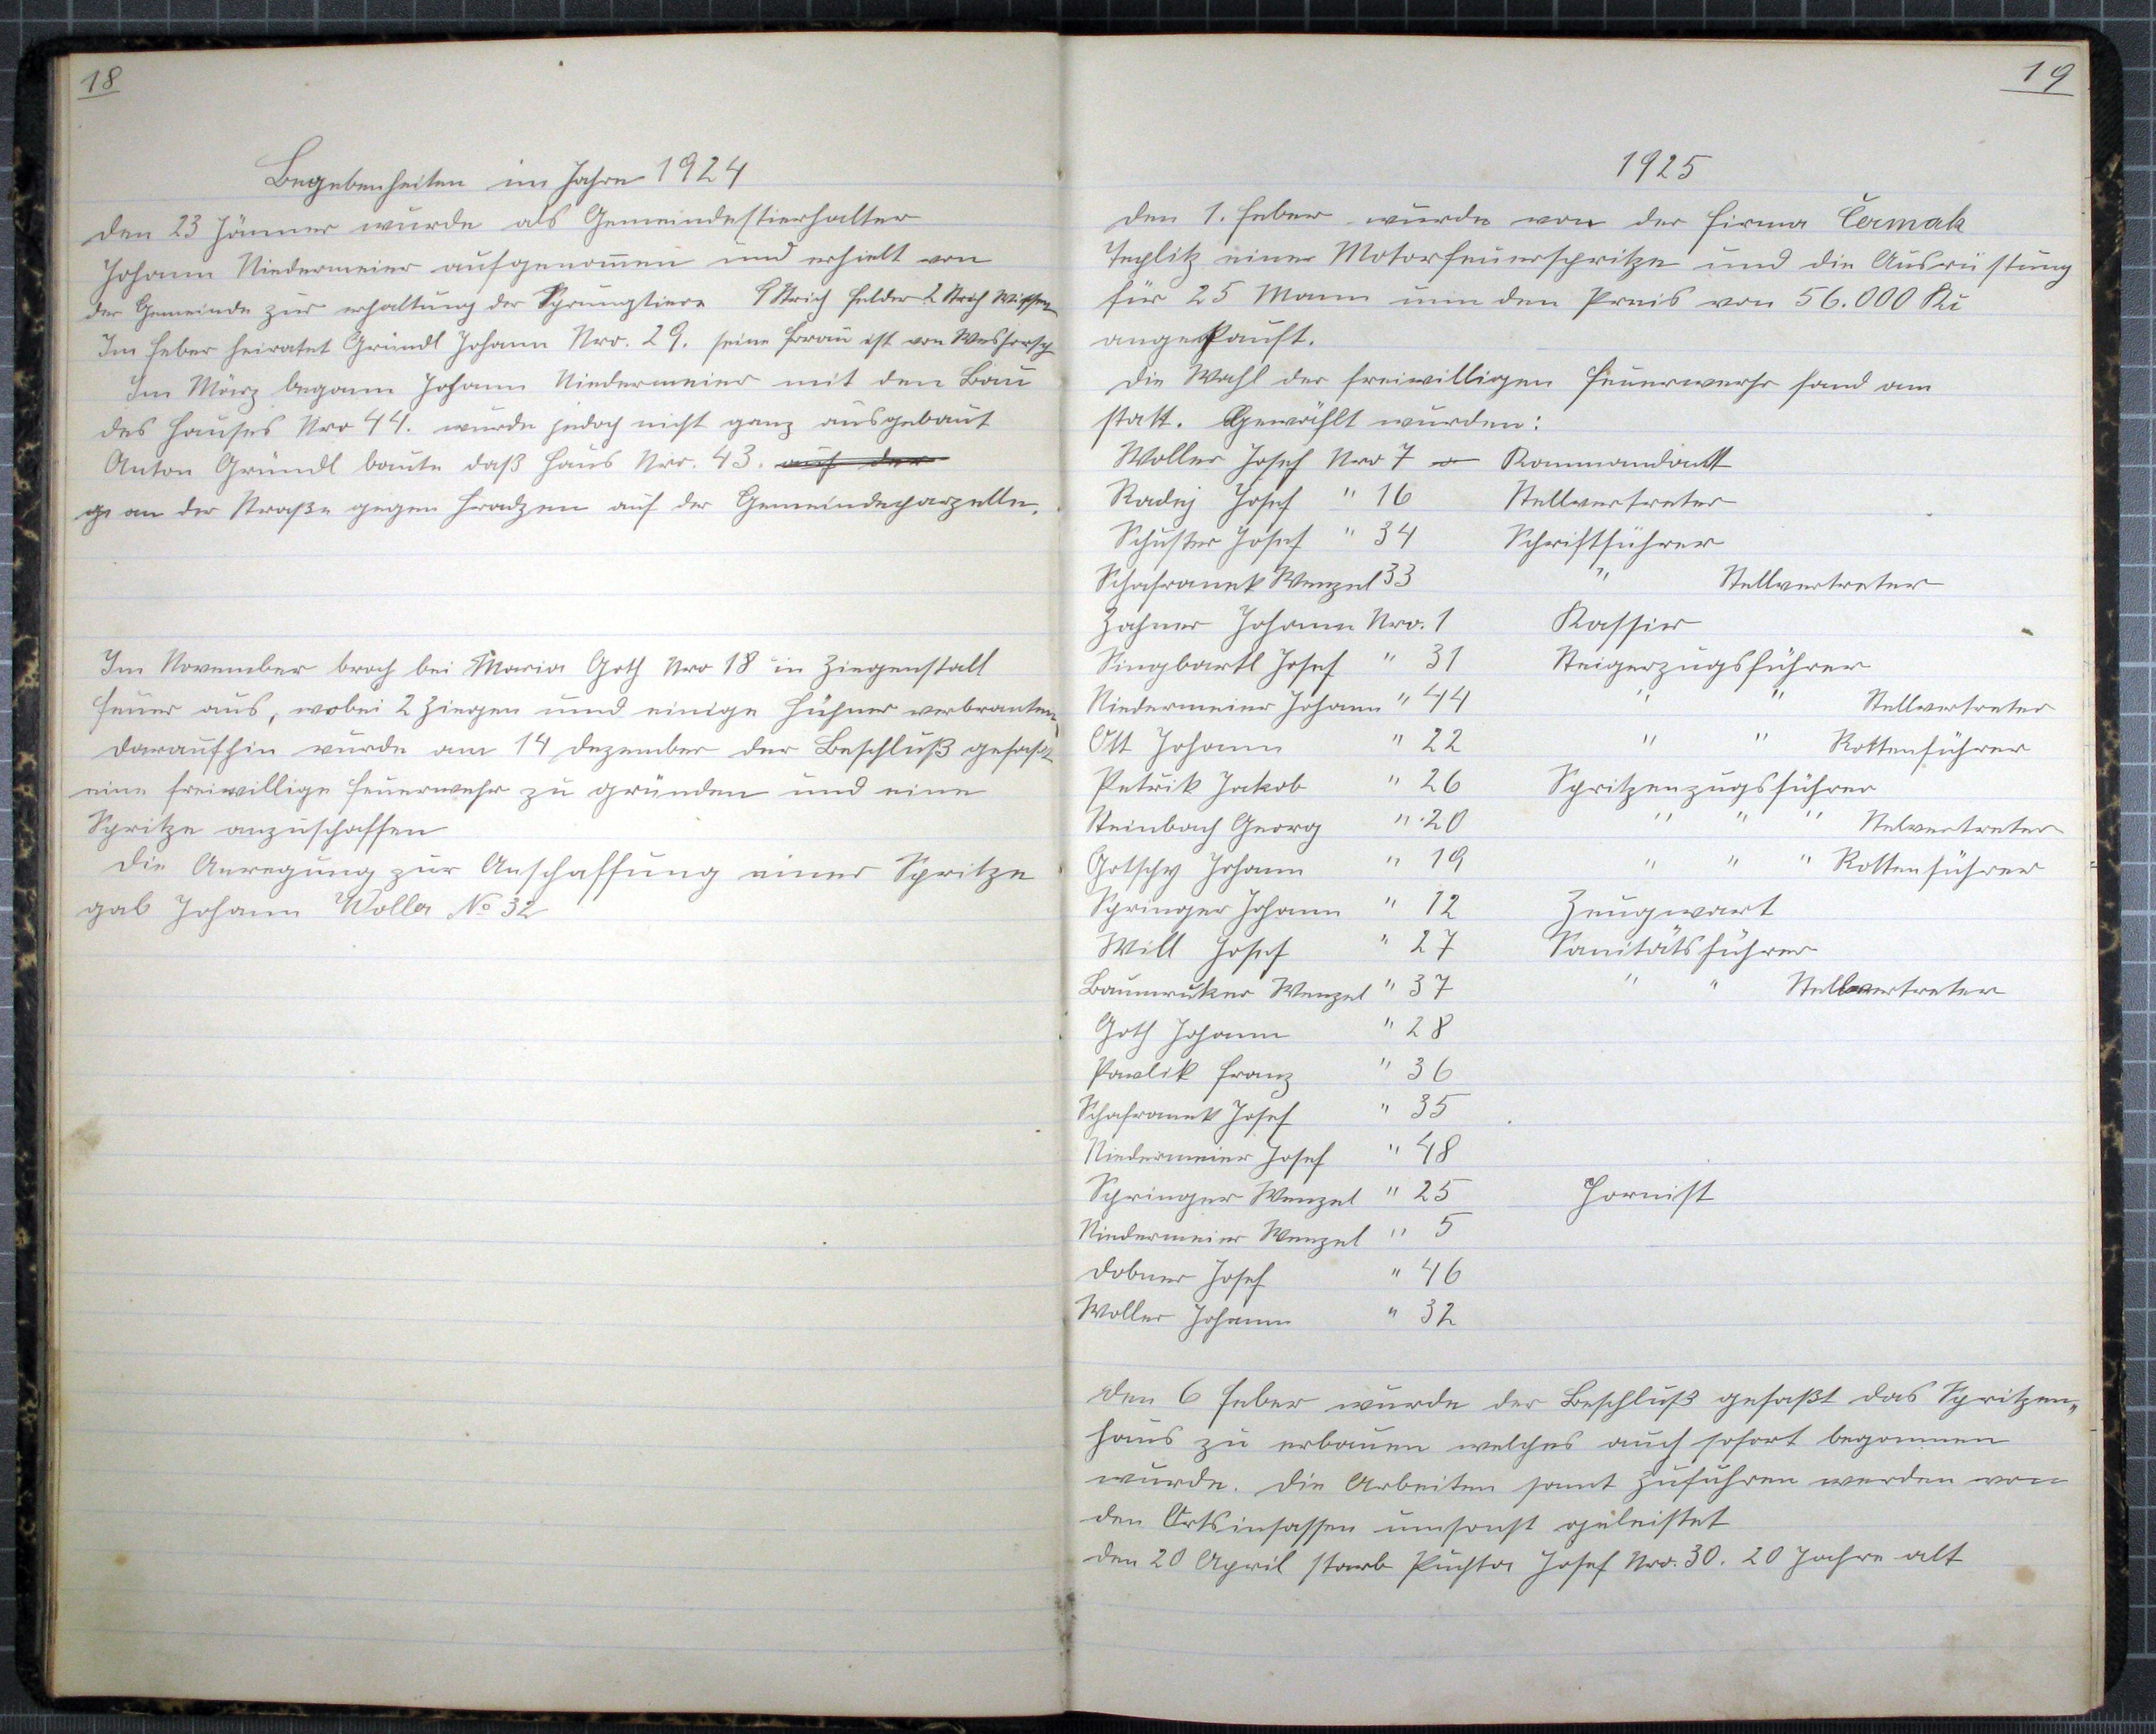 18
Begebenheiten im Jahre 1924
Den 23 Jänner wurde als Gemeindestierhalter
Johann Niedermeier aufgenom̅en und erhielt von
der Gemeinde zur erhaltung der Sprungtiere 9 Strich Felder 2 Strich Wießen
Im Feber heiratet Gründl Johann Nro. 29. seine Frau ist von
Im März begann Johann Niedermeier mit den Bau
des Hauses Nro 44. wurde jedoch nicht ganz ausgebaut
Anton Gründl baute daß Haus Nro. 43. auf der
an der Straße gegen Hradzen auf der Gemeindeparzelle.
Im November brach bei Maria Goth Nro 18 in Ziegenstall
Feuer aus, wobei 2 Ziegen und einige Hühner verbranten,
Daraufhin wurde am 14 Dezember der Beschluß gefaßt
eine freiwillige Feuerwehr zu gründen und eine
Spritze anzuschaffen
Die Anregung zur Anschaffung einer Spritze
gab Johann Woller No 32
19
1925
Den 1. Feber wurde von der Firma Čermak
Teplitz einer Motorfeuerspritze und die Ausrüstung
für 25 Mann um den Preis von 56.000 Kč
angekauft.
Die Wahl der freiwilligen Feuerwehr fand am
statt. Gewählt wurden:
Woller Josef Nro 7 Kommandant
Radej Josef " 16 Stellvertreter
Schuster Josef " 34 Schriftführer
Schafranek Wenzel 33 " Stellvertreter
Zahner Johann Nro. 1 Kassier
Singbartl Josef " 31 Steigerzugsführer
Niedermeier Johann " 44 " " Stellvertreter
Ott Johann " 22 " " Rottenführer
Petrik Jakob " 26 Spritzenzugsführer
Steinbach Georg " 20 " " " Stelvertreter
Gotschy Johann " 19 " " " Rottenführer
Springer Johann " 12 Zeugwart
Will Josef " 27 Sanitätsführer
Baumruker Wenzel " 37 " " Stellvertreter
Goth Johann " 28
Pavlik Franz " 36
Schafranek Josef " 35
Niedermeier Josef " 48
Springer Wenzel " 25 Hornist
Niedermeier Wenzel " 5
Dobner Josef " 46
Woller Johann " 32
Den 6 Feber wurde der Beschluß gefaßt das Spritzen„
haus zu erbauen welches auch sofort begonnen
wurde. Die Arbeiten samt Zufuhren werden von
den Ortsinsassen umsonst geleistet
Den 20 April starb Puchta Josef Nro. 30. 20 Jahre alt